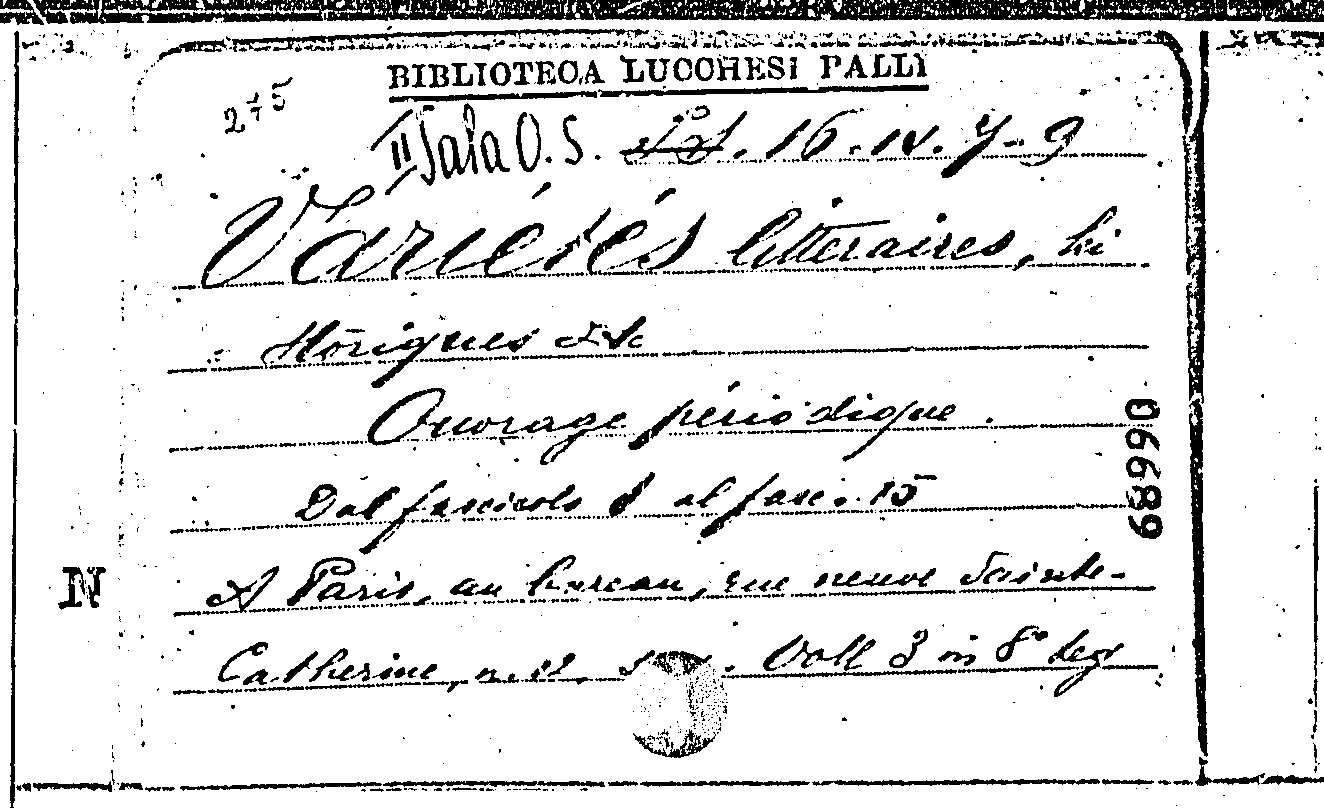 BIBLIOTECA LUCCHESI PALLI
275
II Sala O. S. 16. IV. 7-9
Variétés littéraires, hi
Storiques etc
Ouvrage périodique.
Dal fascicolo 1 al fasc. 15
A Paris, au bureau, rue neuve Sainte-
Catherine, n. 12, Voll 3 in 8° leg
68990
N